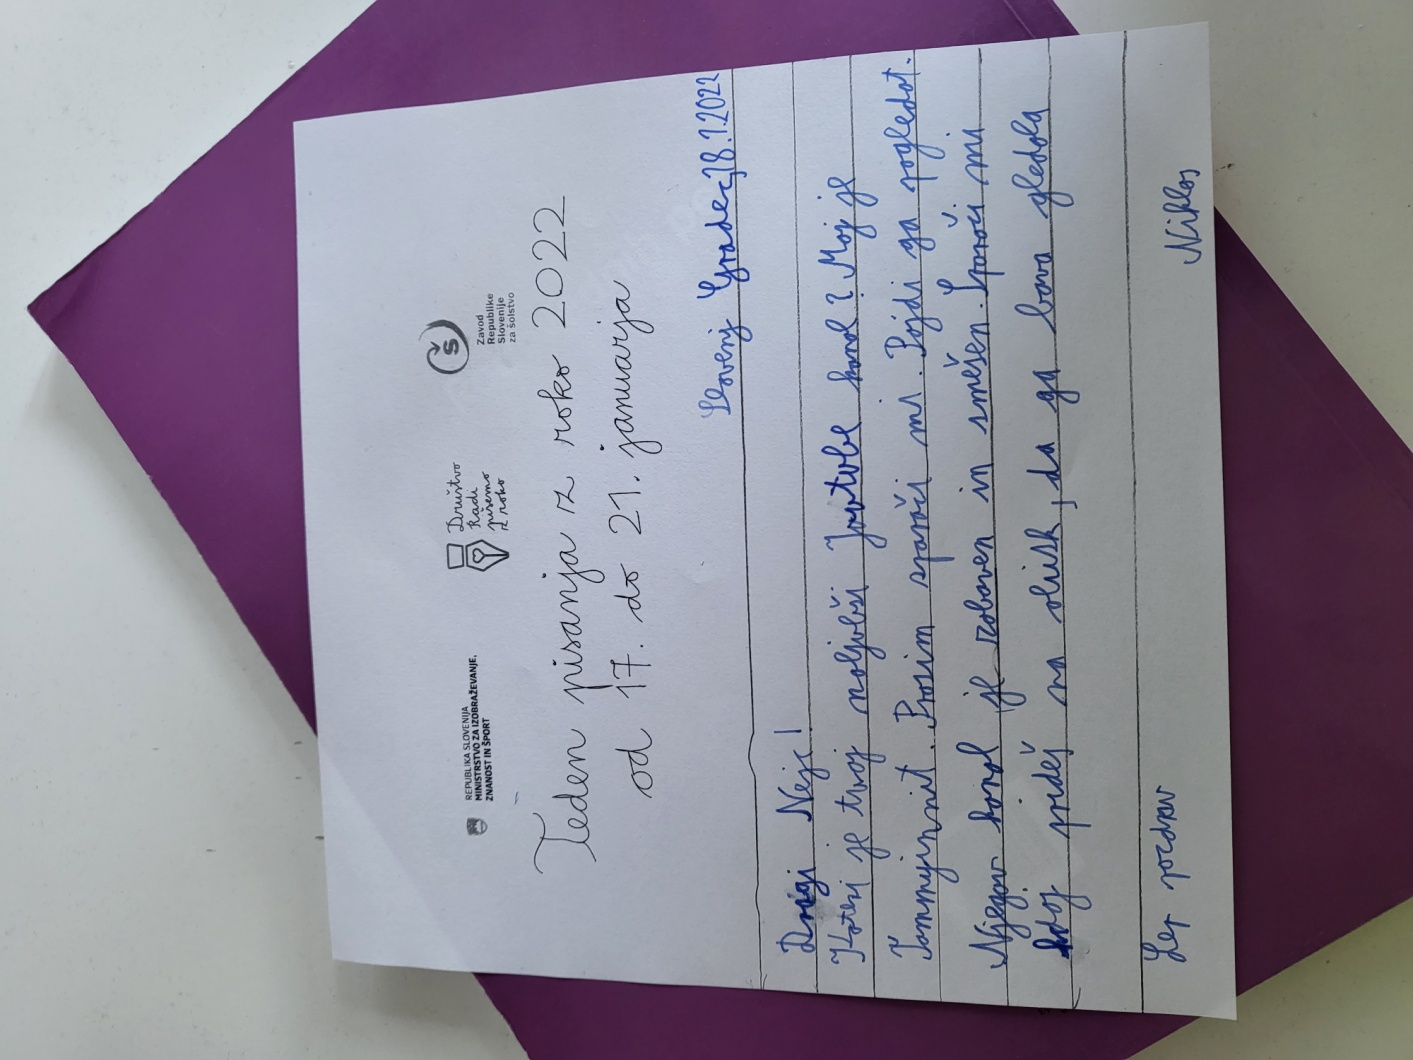 REPUBLIKA SLOVENIJA
MINISTRSTVO ZA IZOBRAŽEVANJE,
ZNANOST IN ŠPORT
Društvo
Radi
pišemo
z roko
Zavod
Republike
Slovenije
za šolstvo
Teden pisanja z roko 2022
od 17. do 21. januarja
Slovenj Gradec, 18.1.2022
Dragi Nejc!
Kateri je tvoj najljubši Youtube kanal? Moj je
Prosim sporoči mi. Pojdi ga pogledat.
Njegov kanal je zabaven in smešen. Sporoči mi
kdaj prideš na obisk, da ga bova gledala
Lep pozdrav
Niklas